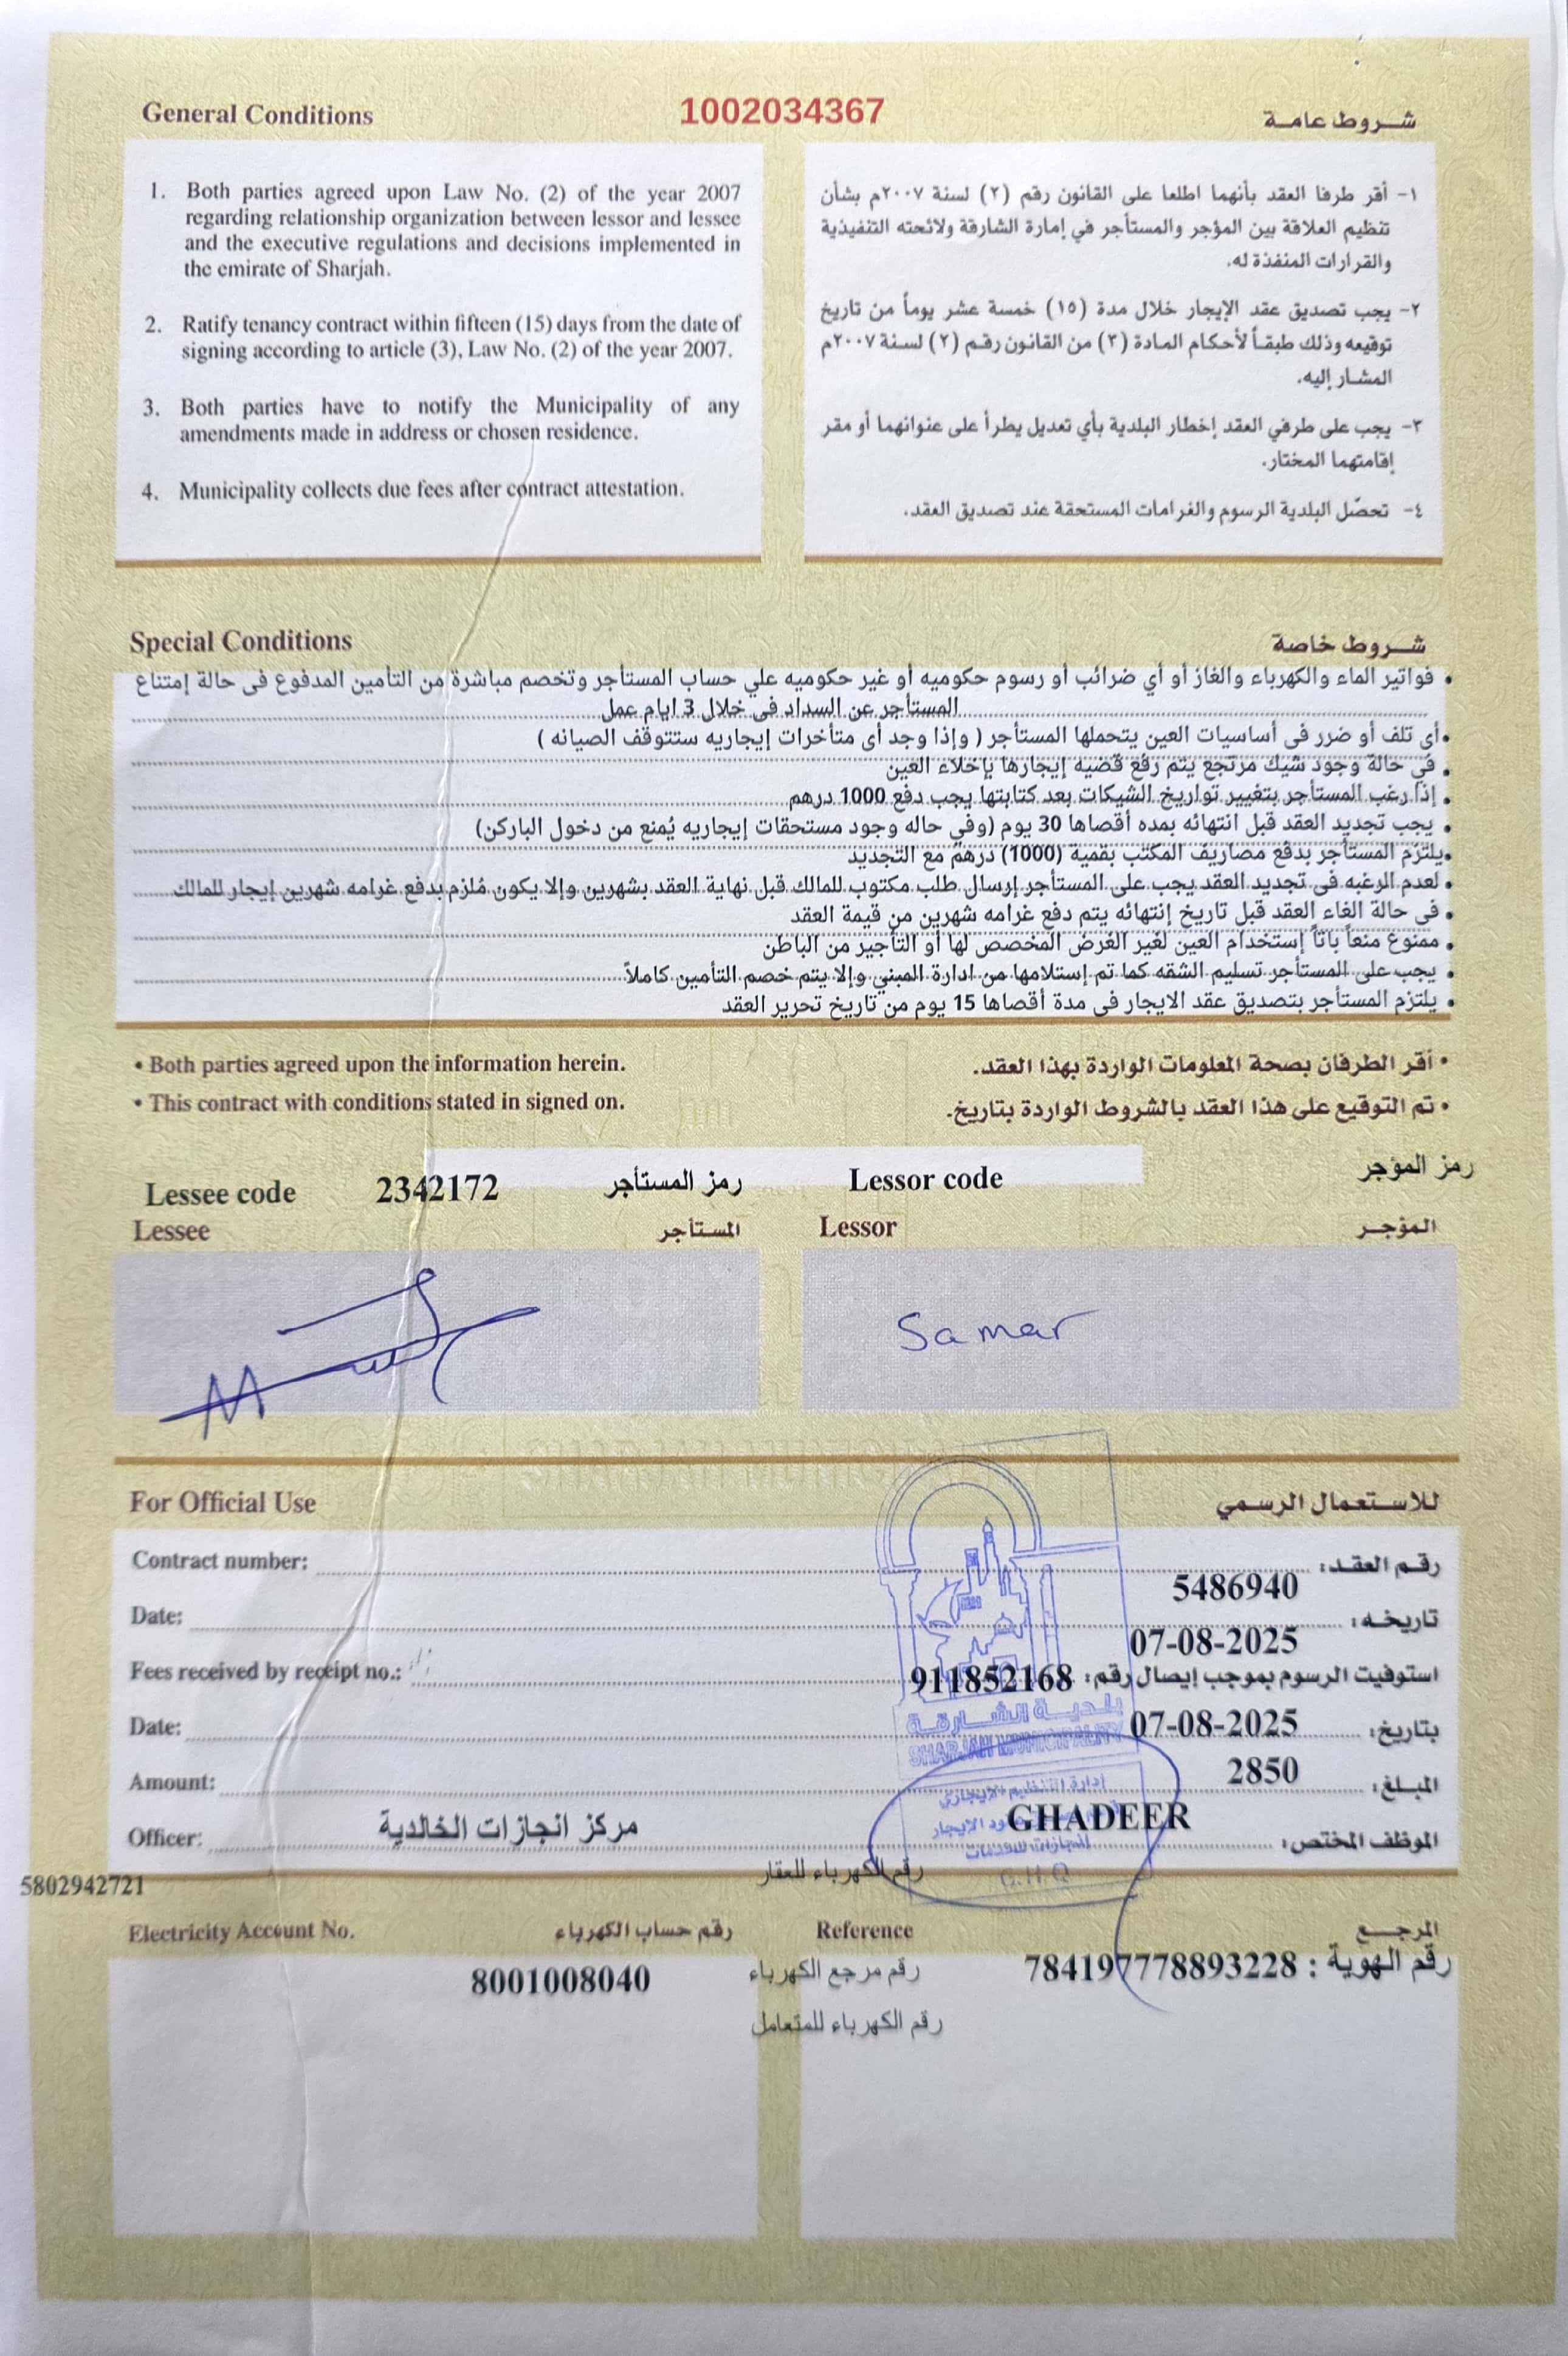 General Conditions
1002034367
شروط عامة
1. Both parties agreed upon Law No. (2) of the year 2007
regarding relationship organization between lessor and lessee
and the executive regulations and decisions implemented in
the emirate of Sharjah.
2. Ratify tenancy contract within fifteen (15) days from the date of
signing according to article (3), Law No. (2) of the year 2007.
3. Both parties have to notify the Municipality of any
amendments made in address or chosen residence.
4. Municipality collects due fees after contract attestation.
١- أقر طرفا العقد بأنهما اطلعا على القانون رقم (٢) لسنة ٢٠٠٧م بشأن
تنظيم العلاقة بين المؤجر والمستأجر في إمارة الشارقة ولائحته التنفيذية
والقرارات المنفذة له.
٢- يجب تصديق عقد الإيجار خلال مدة (١٥) خمسة عشر يوماً من تاريخ
توقيعه وذلك طبقاً لأحكام المادة (٣) من القانون رقم (٢) لسنة ٢٠٠٧م
المشار إليه.
٣- يجب على طرفي العقد إخطار البلدية بأي تعديل يطرأ على عنوانهما أو مقر
إقامتهما المختار.
٤- تحصّل البلدية الرسوم والغرامات المستحقة عند تصديق العقد.
Special Conditions
شروط خاصة
• فواتير الماء والكهرباء والغاز أو أي ضرائب أو رسوم حكوميه أو غير حكوميه علي حساب المستأجر وتخصم مباشرة من التأمين المدفوع فى حالة إمتناع
المستأجر عن السداد فى خلال 3 ايام عمل
• أى تلف أو ضرر فى أساسيات العين يتحملها المستأجر ( وإذا وجد أى متأخرات إيجاريه ستتوقف الصيانه )
• في حالة وجود شيك مرتجع يتم رفع قضيه إيجارها بإخلاء العين
• إذا رغب المستأجر بتغيير تواريخ الشيكات بعد كتابتها يجب دفع 1000 درهم
• يجب تجديد العقد قبل انتهائه بمده أقصاها 30 يوم (وفي حاله وجود مستحقات إيجاريه يُمنع من دخول الباركن)
• يلتزم المستأجر بدفع مصاريف المكتب بقمية (1000) درهم مع التجديد
• لعدم الرغبه فى تجديد العقد يجب على المستأجر إرسال طلب مكتوب للمالك قبل نهاية العقد بشهرين وإلا يكون مُلزم بدفع غرامه شهرين إيجار للمالك
• فى حالة الغاء العقد قبل تاريخ إنتهائه يتم دفع غرامه شهرين من قيمة العقد
• ممنوع منعاً باتاً إستخدام العين لغير الغرض المخصص لها أو التأجير من الباطن
• يجب على المستأجر تسليم الشقه كما تم إستلامها من ادارة المبني وإلا يتم خصم التأمين كاملاً
• يلتزم المستأجر بتصديق عقد الايجار فى مدة أقصاها 15 يوم من تاريخ تحرير العقد
• Both parties agreed upon the information herein.
• أقر الطرفان بصحة المعلومات الواردة بهذا العقد.
• This contract with conditions stated in signed on.
• تم التوقيع على هذا العقد بالشروط الواردة بتاريخ.
Lessee code 2342172 رمز المستأجر
Lessor code رمز المؤجر
Lessee المستأجر
Lessor المؤجر
Samar
For Official Use
للاستعمال الرسمي
Contract number: 5486940 رقم العقد:
Date: 07-08-2025 تاريخه:
Fees received by receipt no.: 911852168 استوفيت الرسوم بموجب إيصال رقم:
Date: 07-08-2025 بتاريخ:
Amount: 2850 المبلغ:
Officer: مركز انجازات الخالدية GHADEER الموظف المختص:
بلدية الشارقة
SHARJAH MUNICIPALITY
إدارة التنظيم الإيجاري
G.H.Q
رقم الكهرباء للعقار
5802942721
Electricity Account No. رقم حساب الكهرباء
Reference المرجع
8001008040 رقم مرجع الكهرباء
رقم الهوية : 784197778893228
رقم الكهرباء للمتعامل